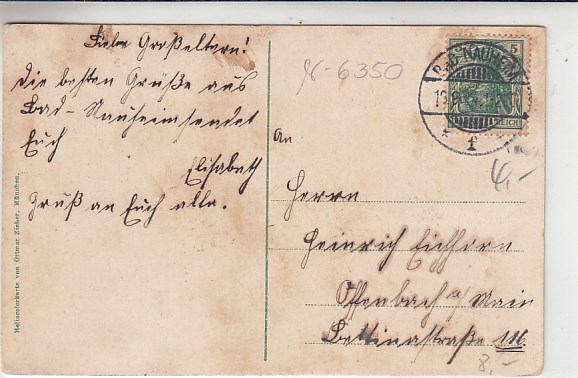 Liebe Großeltern!
Die besten Grüße aus
Bad-Nauheim sendet
Euch
Elisabeth
Gruß an Euch alle.
Heliocolorkarte von Ottmar Zieher, München.
6350
5
BAD-NAUHEIM
REICH
f
An
Herrn
Heinrich Eichhorn
Offenbach a/Main
Bettinastraße
8,-